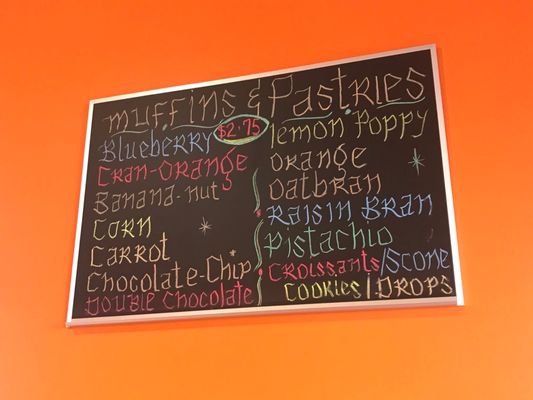 muffins & Pastries
$2.75
Blueberry
Cran-Orange
Banana-nut
Corn
Carrot
Chocolate-Chip
Double Chocolate
lemon Poppy
orange
oatbran
Raisin Bran
Pistachio
Croissants/Scone
Cookies/Drops